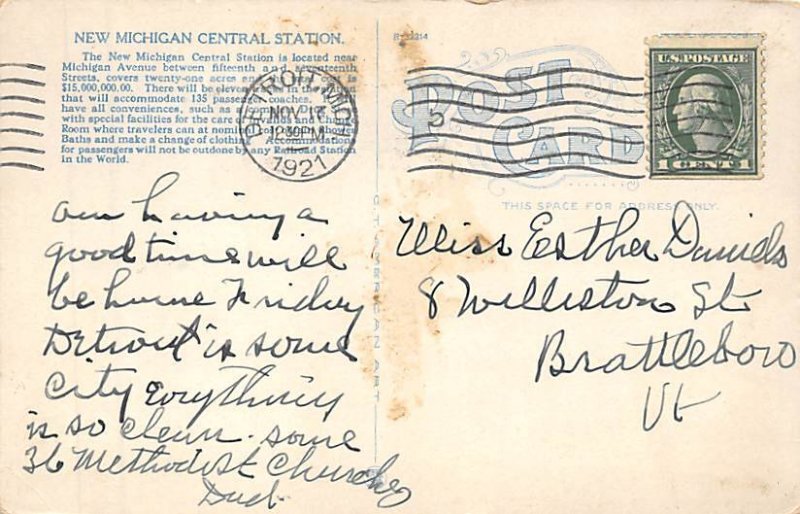 NEW MICHIGAN CENTRAL STATION.
The New Michigan Central Station is located near
Michigan Avenue between fifteenth and seventeenth
Streets, covers twenty-one acres and cost is
$15,000,000.00. There will be eleven in the
that will accommodate 135 passenger coaches.
have all conveniences, such as Drug
with special facilities for the care of and
Room where travelers can at nominal cost
Baths and make a change of clothing. Accommodations
for passengers will not be outdone by any Railroad Station
in the World.
R-35214
POST
CARD
THIS SPACE FOR ADDRESS ONLY.
U.S. POSTAGE
1 CENT 1
DETROIT, MICH
NOV
12 30 PM
1921
5
C. T. AMERICAN ART
am having a
good time will
be home Friday
Detroit is some
City Everything
is so clean. some
36 Methodist Churches
Dad.
Miss Esther Daniels
8 Williston St
Brattleboro
Vt